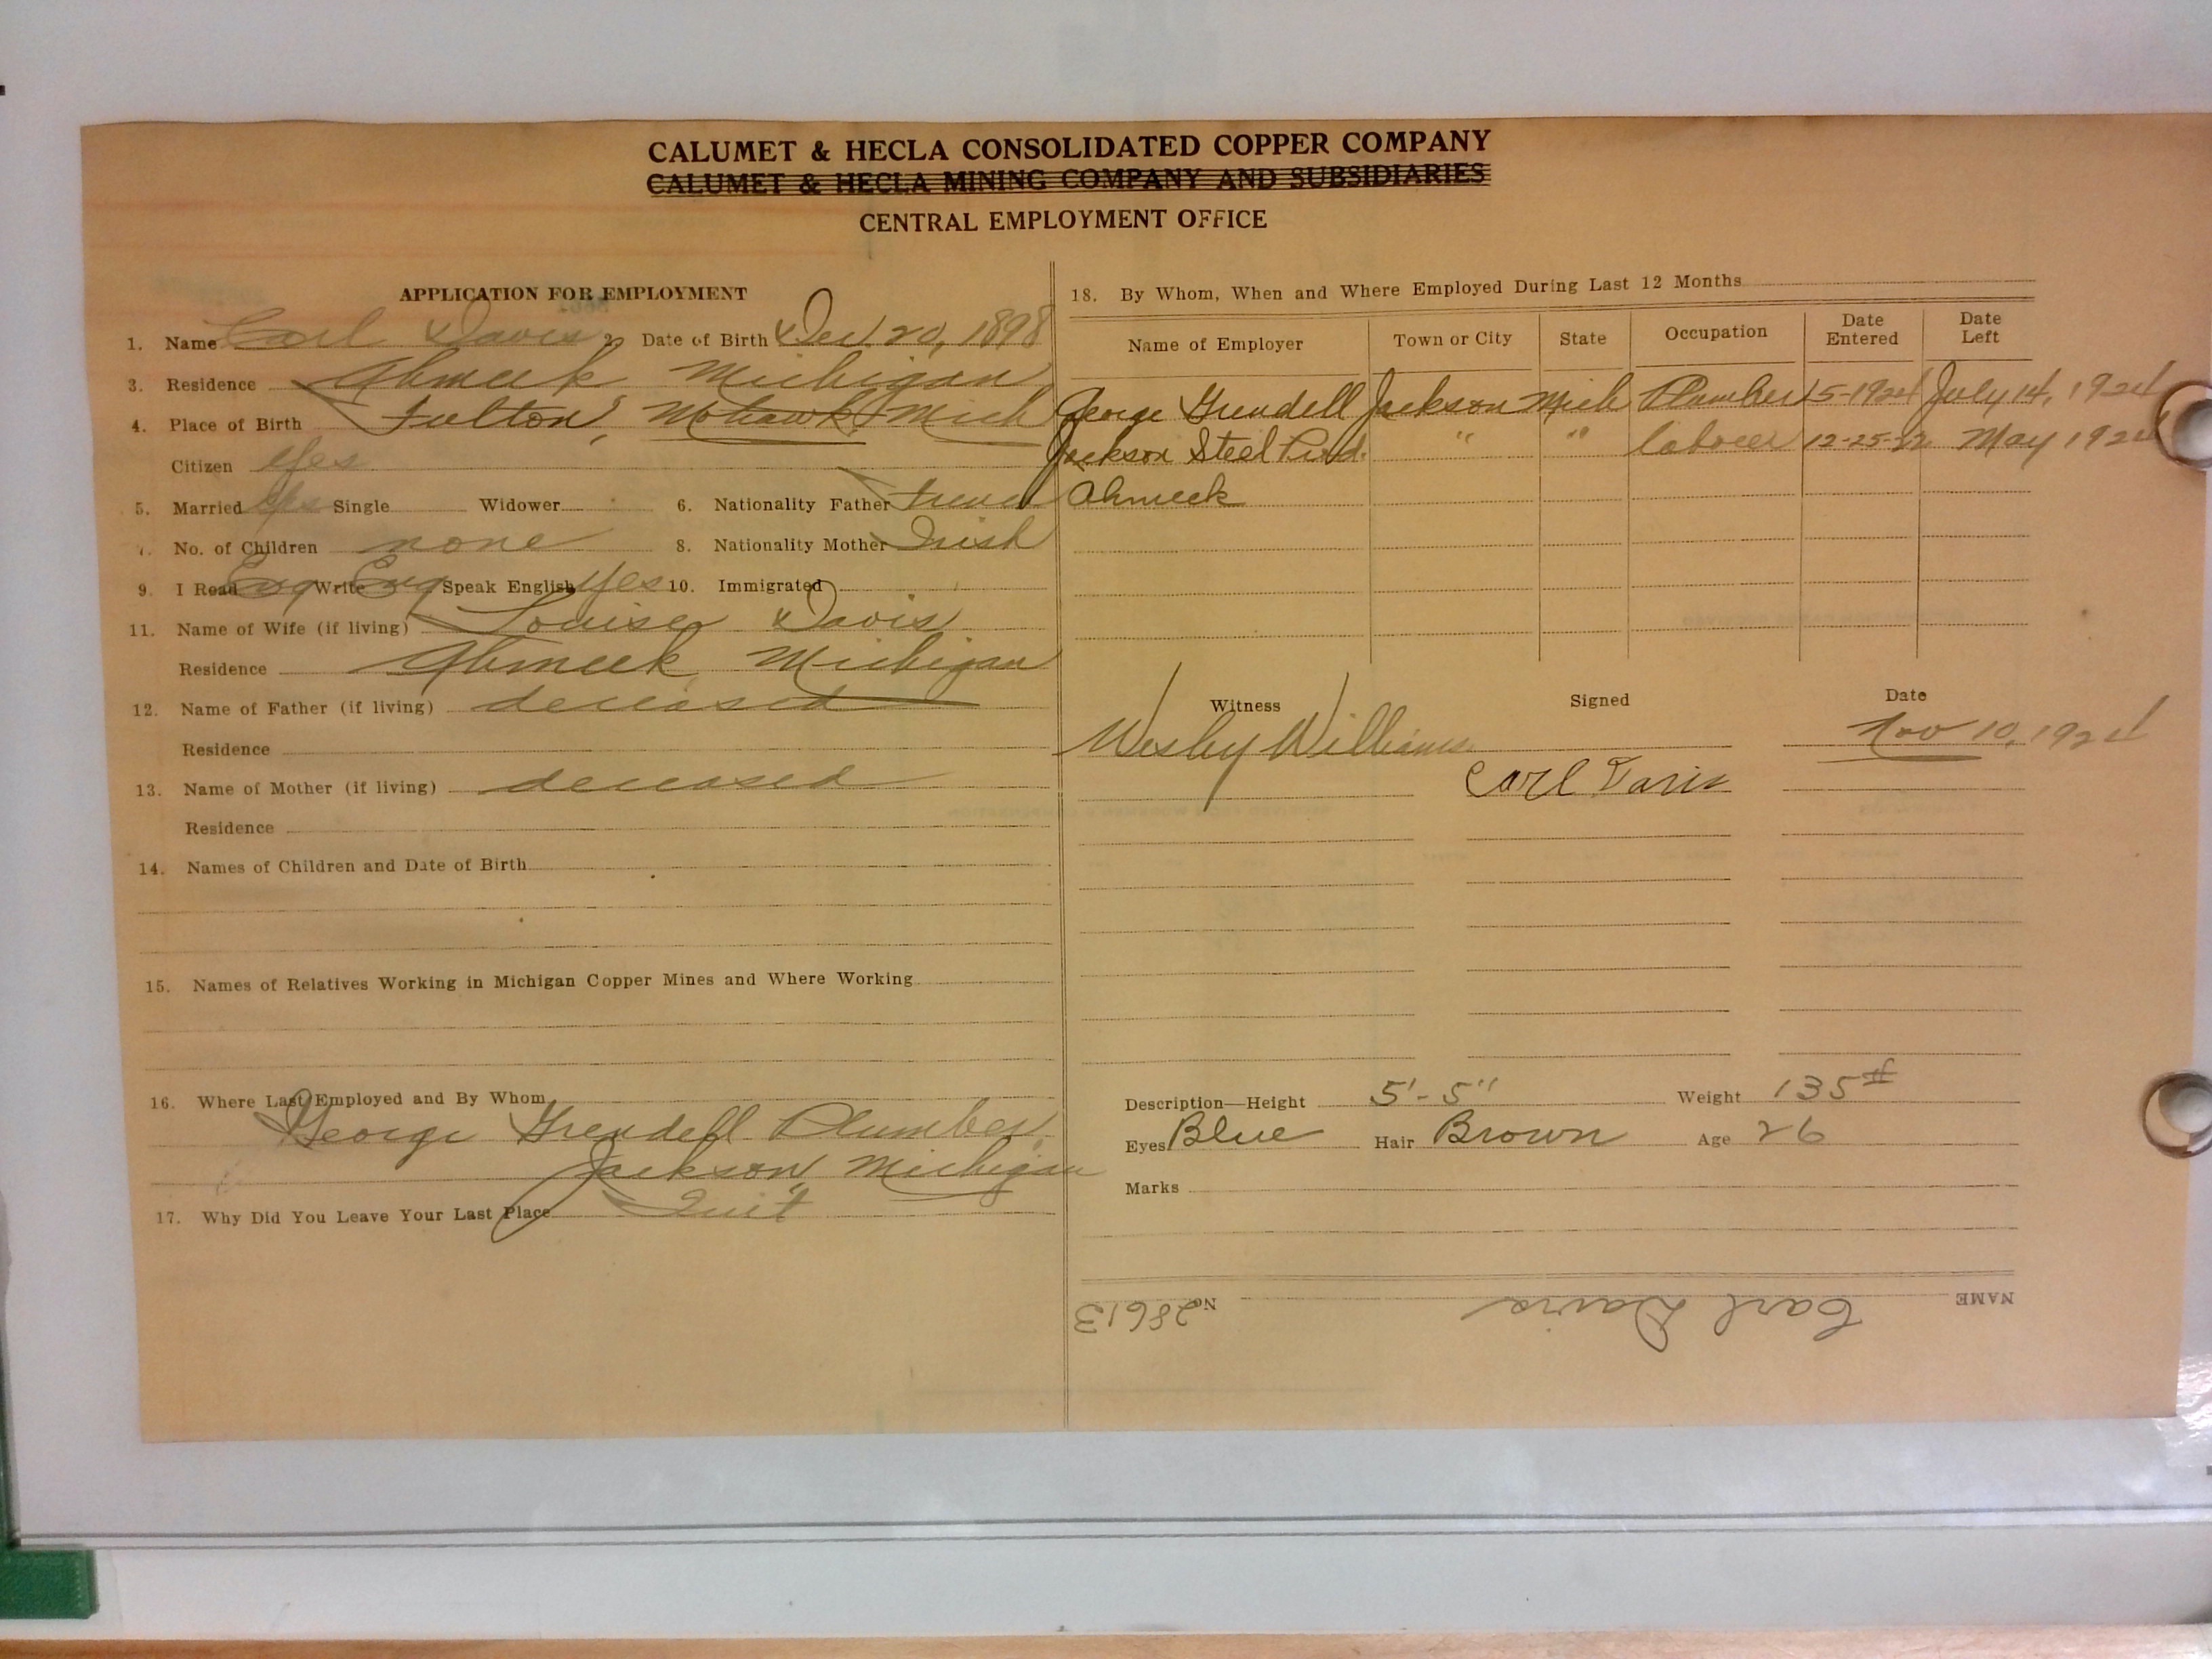 CALUMET & HECLA CONSOLIDATED COPPER COMPANY
CALUMET & HECLA MINING COMPANY AND SUBSIDIARIES
CENTRAL EMPLOYMENT OFFICE
APPLICATION FOR EMPLOYMENT
1. Name Carl Davis 2. Date of Birth Dec. 20, 1898
3. Residence Ahmeek Michigan
4. Place of Birth Fulton, Mohawk Mich
Citizen Yes
5. Married Yes Single Widower 6. Nationality Father French
7. No. of Children none 8. Nationality Mother Irish
9. I Read Eng Write Eng Speak English Yes 10. Immigrated
11. Name of Wife (if living) Louise Davis
Residence Ahmeek Michigan
12. Name of Father (if living) deceased
Residence
13. Name of Mother (if living) deceased
Residence
14. Names of Children and Date of Birth
15. Names of Relatives Working in Michigan Copper Mines and Where Working
16. Where Last Employed and By Whom
George Grendell Plumber,
Jackson, Michigan
17. Why Did You Leave Your Last Place Quit
18. By Whom, When and Where Employed During Last 12 Months
Name of Employer Town or City State Occupation Date Entered Date Left
George Grendell Jackson Mich Plumber 5-1924 July 14, 1924
Jackson Steel Prod. " " laborer 12-25-22 May 1924
Ahmeek
Witness Signed Date
Wesley Williams Nov 10, 1924
Carl Davis
Description—Height 5'-5" Weight 135#
Eyes Blue Hair Brown Age 26
Marks
NAME Carl Davis No. 28613